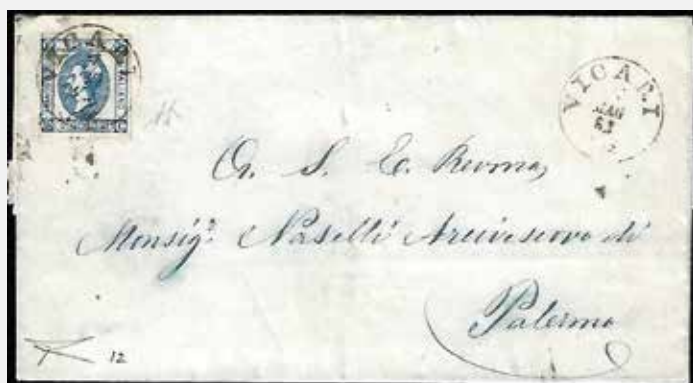 VICARI
VICARI
MAG
63
A. S. E. Revma,
Monsigr. Naselli Arcivescovo di
Palermo
12